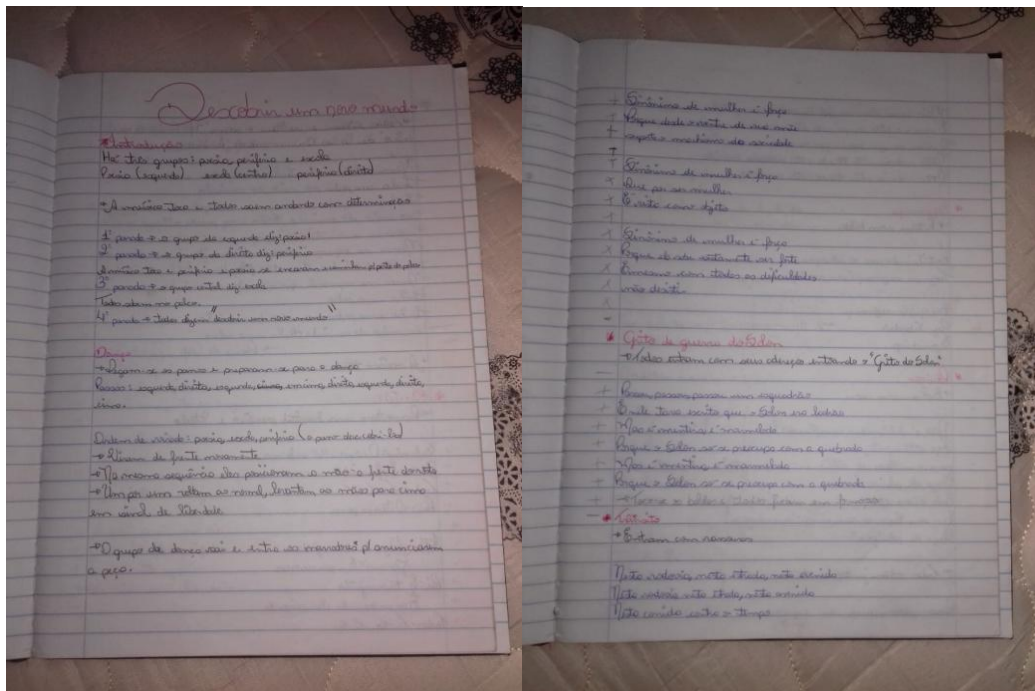 Descobrir um novo mundo
Introdução
Há três grupos: poesia, periferia e escola
Poesia (esquerda) escola (centro) periferia (direita)
→ A música toca e todos saem andando com determinação
1ª parada → o grupo da esquerda diz: poesia!
2ª parada → o grupo da direita diz: periferia
A música toca e periferia e poesia se encaram e caminham p/ perto do palco
3ª parada → o grupo central diz: escola
Todos sobem no palco.
4ª parada → Todos dizem "descobrir um novo mundo"
Dança
→ pegam-se os panos e preparam-se para a dança
Passos: esquerda, direita, esquerda, em cima, direita, esquerda, direita,
cima.
Ordem de saída: poesia, escola, periferia (o pano deve cobri-los)
→ Viram de frente novamente
→ Na mesma sequência eles posicionam a mão a frente do rosto
→ Um por um voltam ao normal, levantam as mãos para cima
em sinal de liberdade
→ O grupo de dança sai e entra os p/ anunciarem
a peça.
Sinônimo de mulher é força
Porque desde o ventre de sua mãe
machismo da sociedade
Sinônimo de mulher é força
Que por ser mulher
É vista como objeto
Sinônimo de mulher é força
Porque ela não somente ser forte
E mesmo com todas as dificuldades
não desiti.
Grito de guerra do Edson
→ Todos estam com seus entrando o "Grito do Edson"
Passa, passa, passa um esquadrão
E nele tava escrito que o Edson era ladrão
Mas é mentira, é marmelada
Porque o Edson só se preocupa com a quebrada
Mas é mentira, é marmelada
Porque o Edson só se preocupa com a quebrada
→ Toca-se o e todos ficam
→ Entram com
Nesta rodovia, nesta estrada, nesta avenida
Nesta rodovia nesta estrada, nesta avenida
Nesta corrida contra o tempo